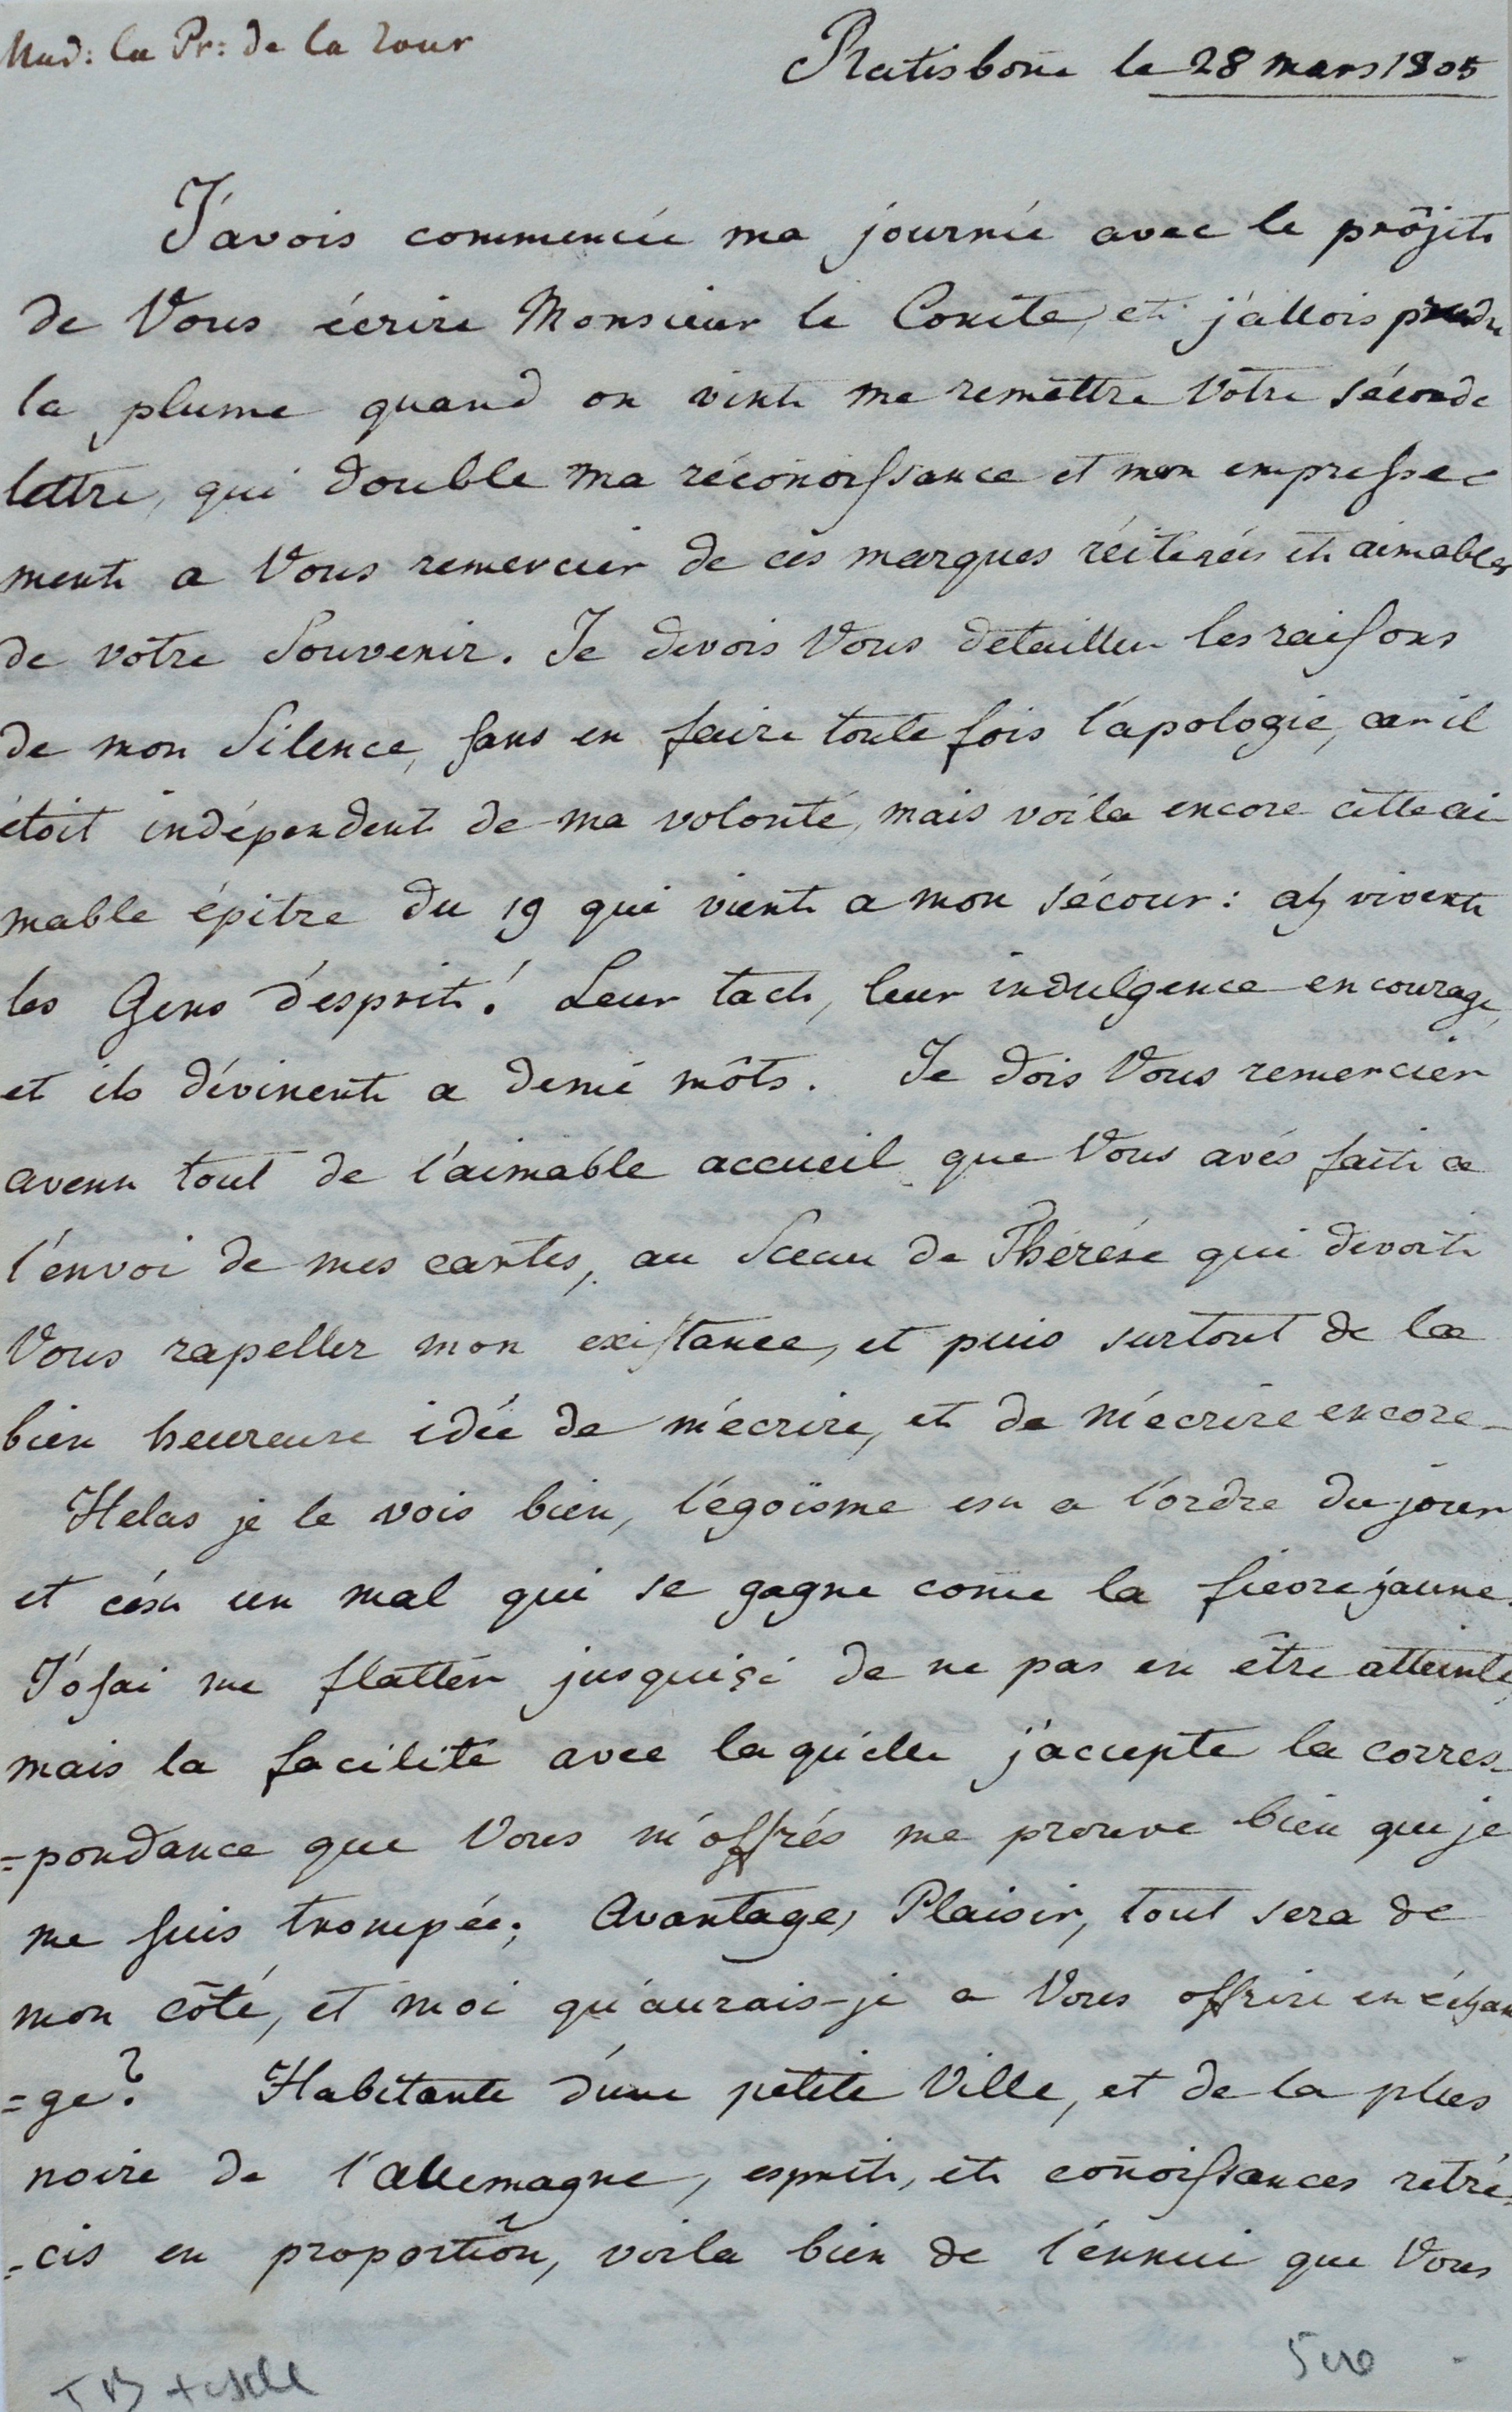 Mad: la Pr: de la Tour
Ratisboñe le 28 mars 1805
J'avois commencée ma journée avec le projèt
de Vous écrire Monsieur le Comte, et j'allois prendre
la plume quand on vint me remèttre Vôtre séconde
lettre, qui double ma réconoissance et mon empresse-
ment a Vous remercier de ces marques réiterées et aimables
de votre Souvenir. Je devois Vous detailler les raisons
de mon Silence, sans en faire toute fois l'apologie, car il
étoit indépendent de ma volonté, mais voila encore cette ai
mable épitre du 19 qui vient a mon sécour: ah vivent
les Gens d'esprit! Leur tact, leur indulgence encourage,
et ils dévinent a demi môts. Je dois Vous remercier
avent tout de l'aimable accueil que Vous avés fait a
l'envoi de mes cartes, au Sceau de Thérése qui devoit
Vous rapeller mon existance, et puis surtout de la
bien heureuse idée de m'écrire, et de m'ecrire encore -
Helas je le vois bien, l'égoïsme est a l'ordre du jour
et c'ést un mal qui se gagne come la fievre jaune.
J'osai me flatter jusquiçi de ne pas en être atteinte,
mais la facilité avec laqu'elle j'accepte la corres-
=pondance que Vous m'offrés me prouve bien que je
me suis trompée; Avantage, Plaisir, tout sera de
mon côté, et moi qu'aurais-je a Vous offrir en échan
=ge? Habitante d'une petite Ville, et de la plus
noire de l'Allemagne, esprit, et coñoissances retré-
=cis en proportion, voila bien de l'ennui que Vous